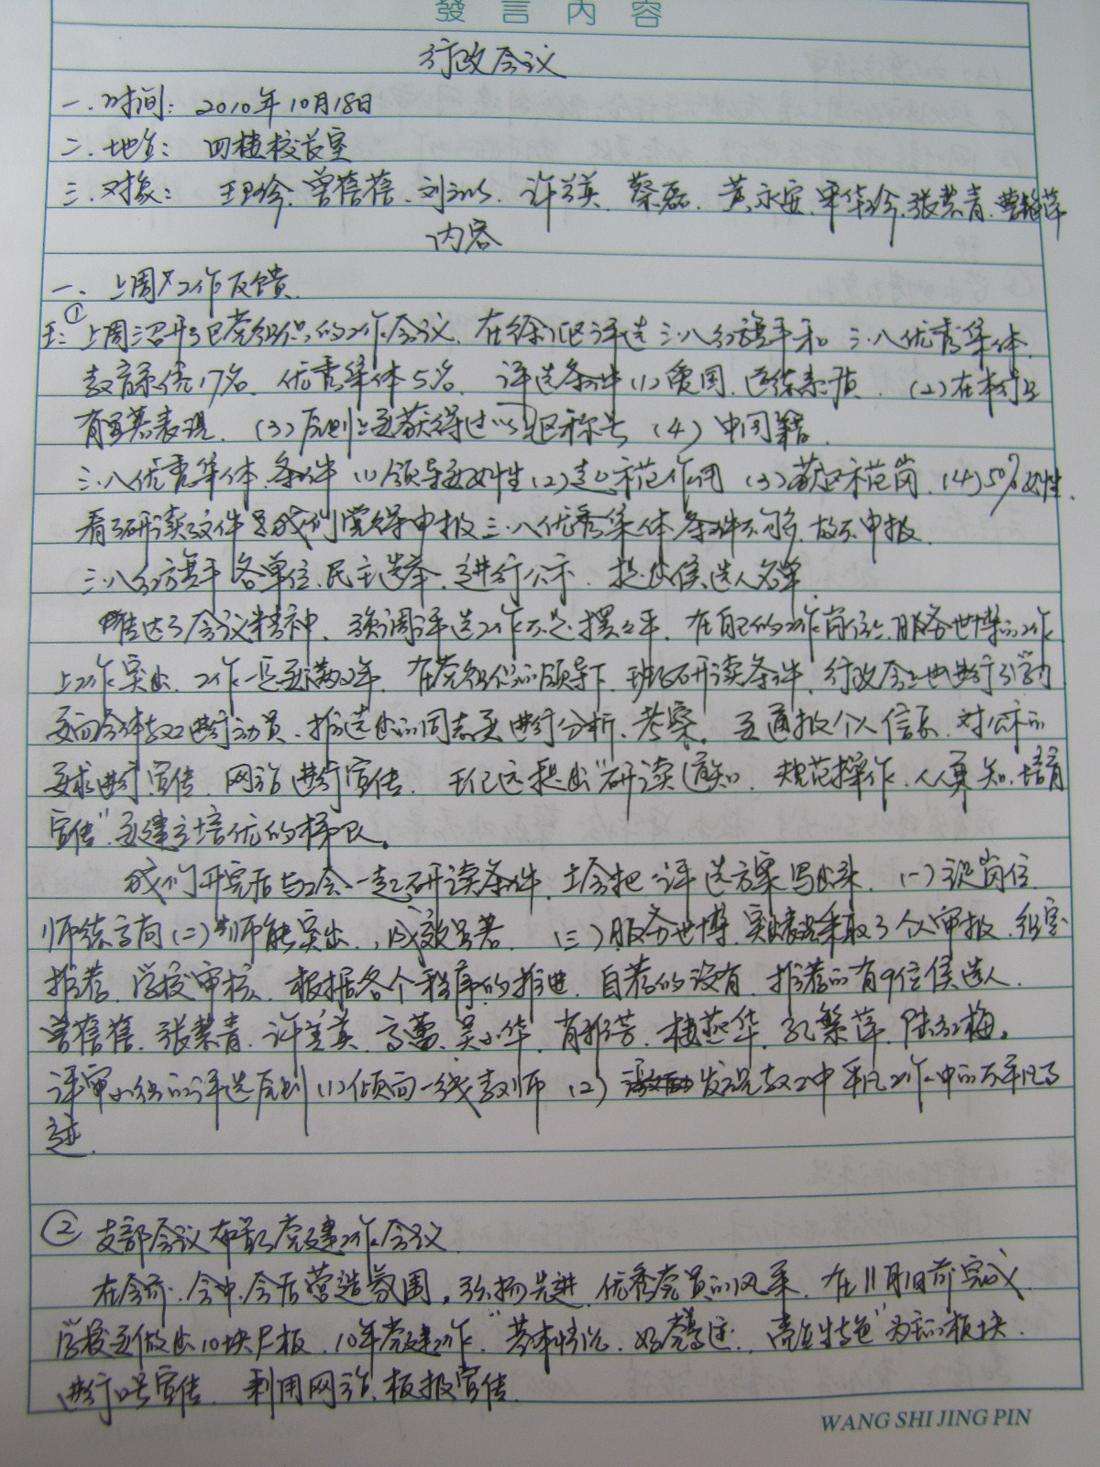 發言内容
行政会议
一.时间: 2010年10月18日
二.地点: 四楼校长室
三.对象: 曾蓓蓓. 刘 许兰英. 蔡磊. 黄永安. 张慧青.
内容
一. 上周工作反馈.
王:① 上周召开了区党组织的工作会议, 在徐汇区评选三.八红旗手和三.八优秀集体.
教育系统17名. 优秀集体5名. 评选条件(1)爱国. (2)在本行业
有显著表现. (3)原则上要获得过以 区称号 (4)中国籍.
三.八优秀集体.条件 (1)领导 女性(2) 示范作用 (3)获区示范岗. (4)50%女性.
研读文件是我们觉得申报三.八优秀集体.条件不够, 故不申报.
三.八红旗手各单位.民主选举.进行公示. 提出候选人名单.
传达了会议精神. 强调评选工作不是摆摆平. 在自己的工作岗位上, 服务世博的工作
上工作突出. 工作一定要满2年. 在党组织的领导下, 班子研读条件, 行政会上也进行学习
要向全体教工进行动员. 推选出的同志要进行分析、考察. 要通报个人信息. 对公示的
要求进行宣传. 网站进行宣传. 书记还提出"研读通知. 规范操作. 人人要知. 培育
宣传" 要建立培优的梯队。
我们开完后与工会一起研读条件, 工会把评选方案写出来. (一)立足岗位.
师德高尚(二)师能突出, 成效显著. (三)服务世博. 采取了个人申报. 组室
推荐. 学校审核. 根据各个程序的推进. 自荐的没有. 推荐的有9位候选人.
曾蓓蓓. 张慧青. 许兰英. 高蕾. 吴小华. 肖雅芳. 楼燕华. 孔繁萍. 陆 梅。
评审小组的评选原则 (1)倾向一线教师 (2) 发现教工中平凡工作中的不平凡事
迹.
② 支部会议布置了党建工作会议
在会前.会中.会后营造氛围, 弘扬先进. 优秀党员的风采. 在11月1日前完成
学校要做出10块展板. 10年党建工作. "基本情况. 事迹. 特色"为主的板块.
进行口号宣传. 利用网站、板报宣传.
WANG SHI JING PIN